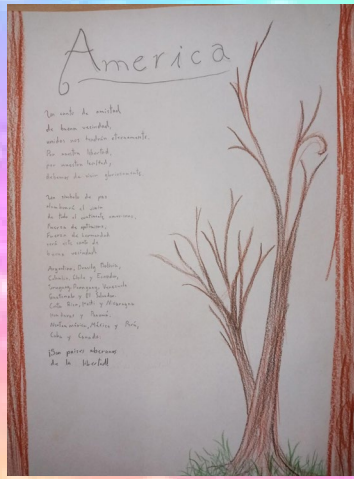 America
Un canto de amistad,
de buena vecindad,
unidos nos tendrá eternamente.
Por nuestra libertad,
por nuestra lealtad,
debemos de vivir gloriosamente.
Un símbolo de paz
alumbrará el vivir
de todo el continente americano,
fuerza de optimismo,
fuerza de hermandad
será este canto de
buena vecindad.
Argentina, Brasil y Bolivia,
Colombia, Chile y Ecuador,
Uruguay, Paraguay, Venezuela
Guatemala y El Salvador
Costa Rica, Haití y Nicaragua
Honduras y Panamá,
Norteamérica, México y Perú,
Cuba y Canadá.
¡Son países
de la libertad!